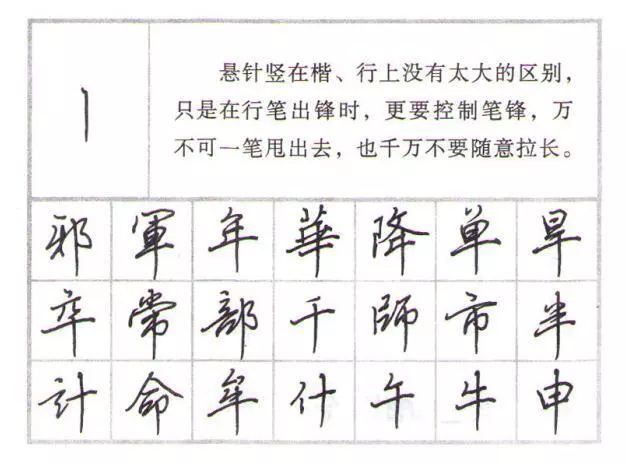 悬针竖在楷、行上没有太大的区别，
只是在行笔出锋时，更要控制笔锋，万
不可一笔甩出去，也千万不要随意拉长。
邪軍年華降单旱
卒常部千師市半
計命牟什午牛申